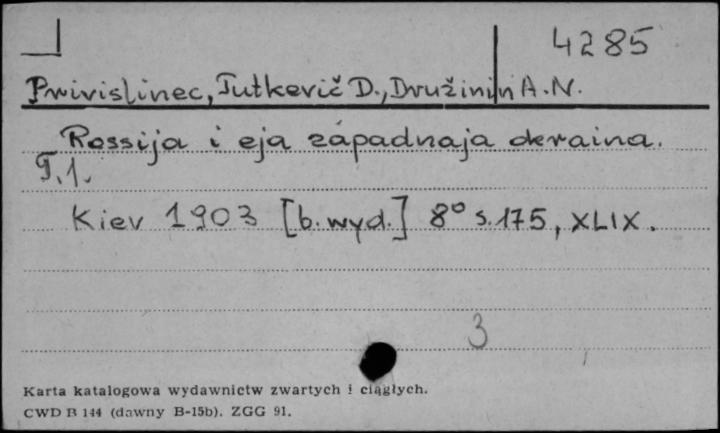 4285
Privislinec, Tutkevič D., Družinin A.N.
Rossija i eja zapadnaja okraina.
T.1.
Kiev 1903 [b.wyd.] 8° s.175, XLIX.
3
Karta katalogowa wydawnictw zwartych i ciągłych.
CWD B 144 (dawny B-15b). ZGG 91.